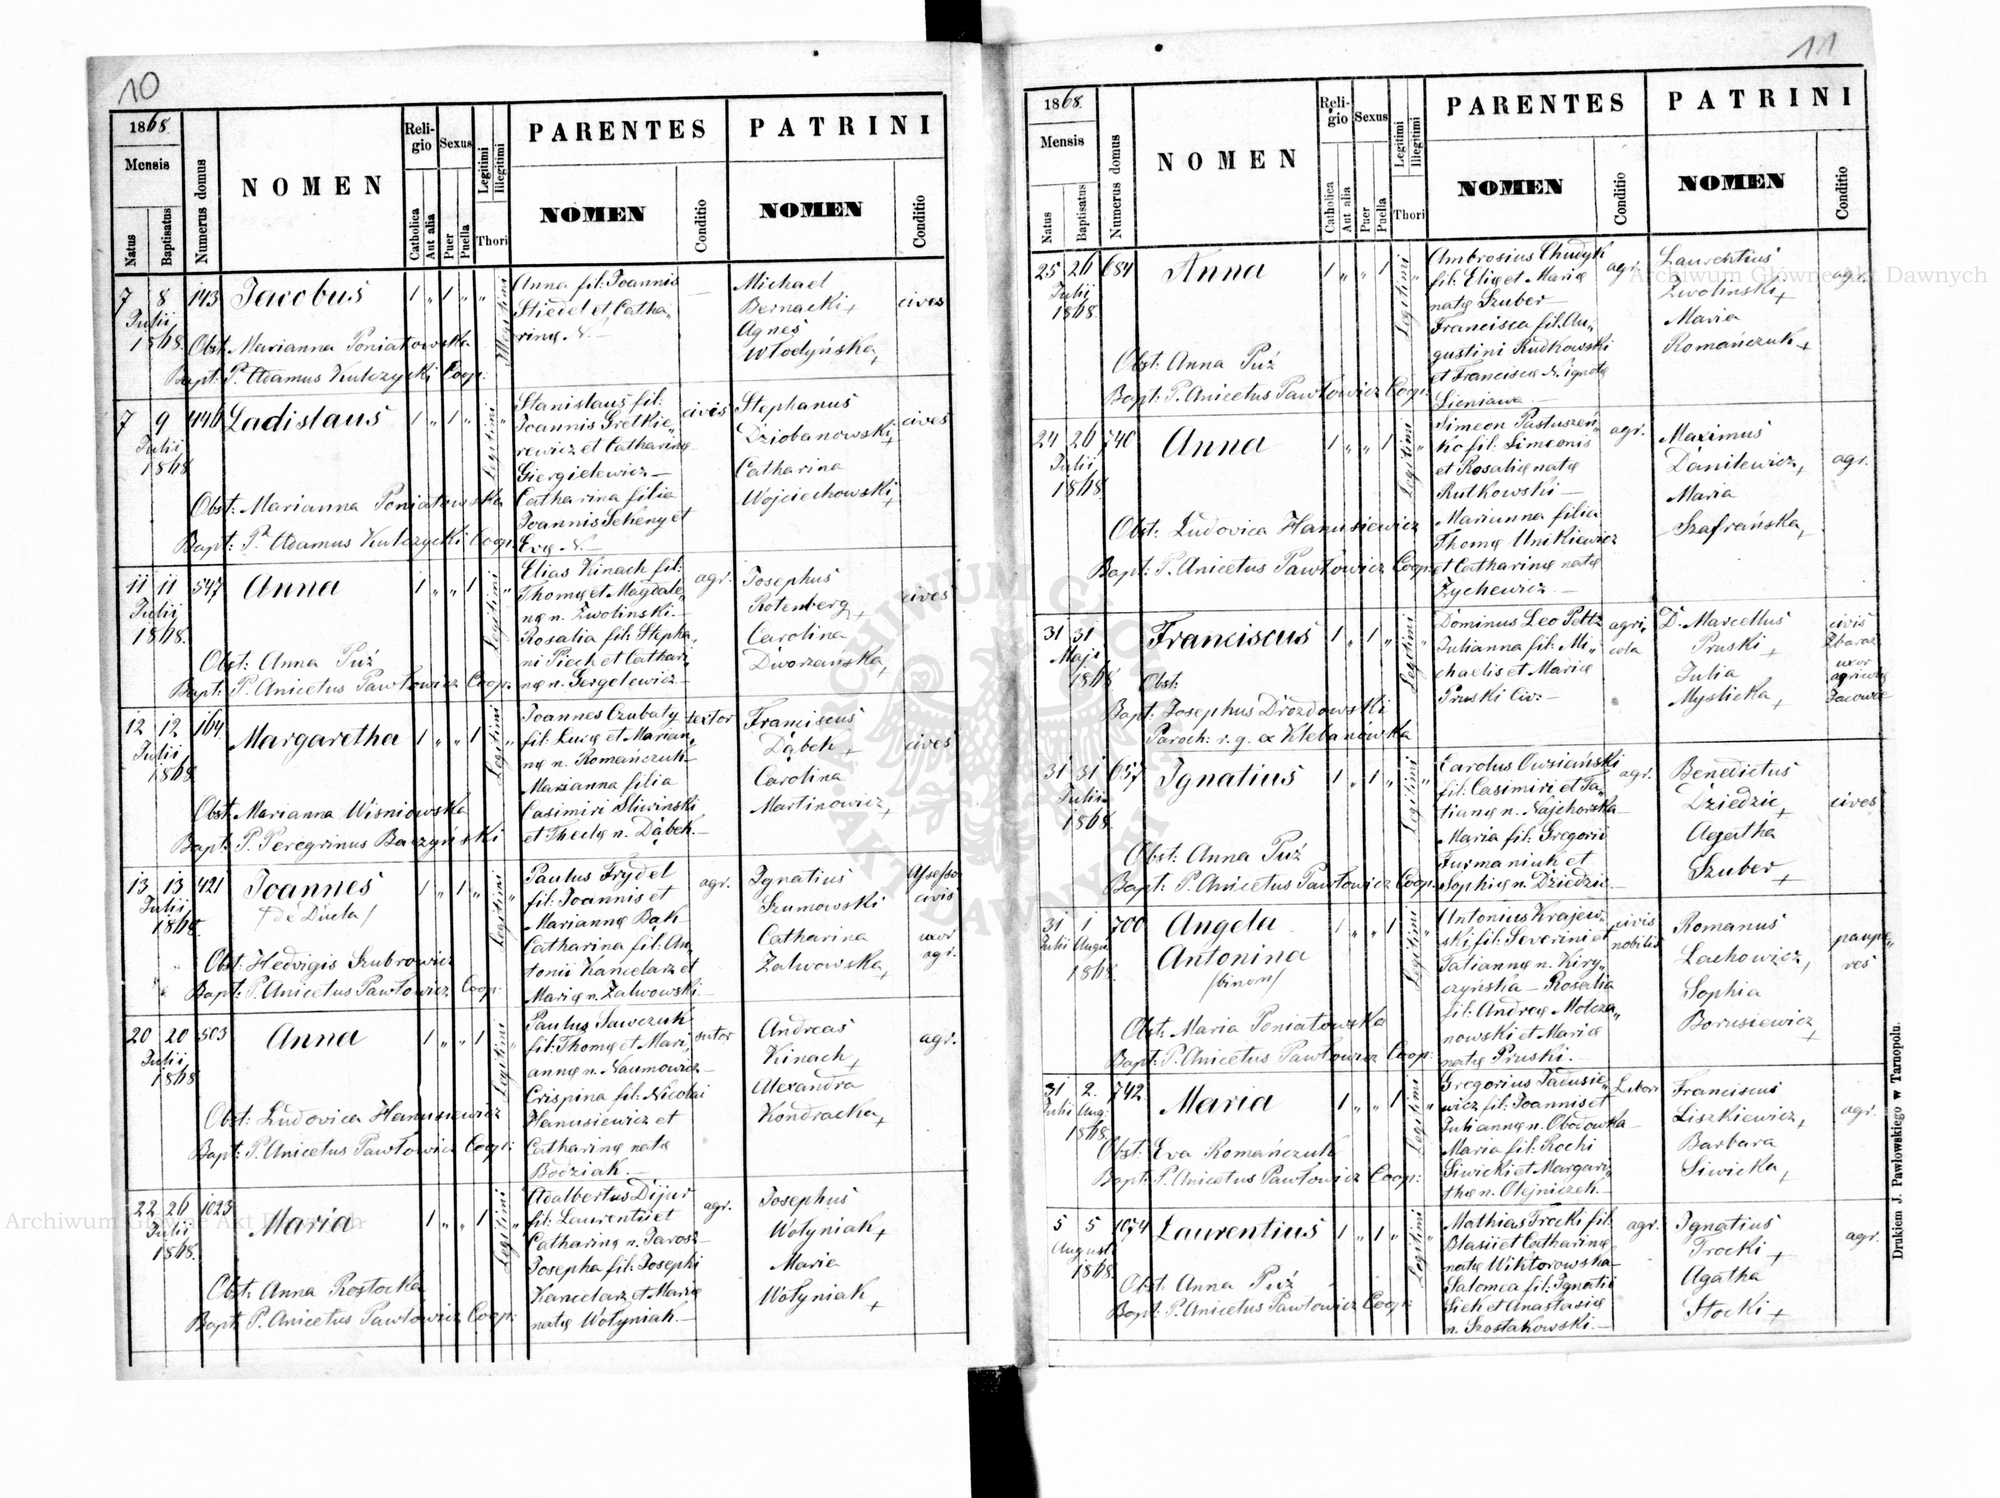 10
1868.
Mensis
Natus
Baptisatus
Numerus domus
NOMEN
Religio
Catholica
Aut alia
Sexus
Puer
Puella
Legitimi
Illegitimi
Thori
PARENTES
NOMEN
Conditio
PATRINI
NOMEN
Conditio
7 8 143 Jacobus 1 „ 1 „ „ Illegitimi
Julii
1868.
Obst: Marianna Poniatowska
Bapt: P. Adamus Kulczycki Coop:
Anna fil: Joannis
Stiedel et Catha„
rinę N.—
Michael
Bernacki +
Agnes
Włodyńska +
cives
7 9 446 Ladislaus 1 „ 1 „ Legitimi „
Julii
1868
Obst: Marianna Poniatowska
Bapt: P. Adamus Kulczycki Coop:
Stanislaus fil:
Joannis Gretkie„
rewicz et Catharinę
Giergielewicz—
Catharina filia
Joannis Sekeny et
Evę N.—
civis
Stephanus
Dziobanowski +
Catharina
Wojciechowski +
cives
11 11 547 Anna 1 „ „ 1 Legitimi „
Julii
1868.
Obst: Anna Puź
Bapt: P. Anicetus Pawłowicz Coop.
Elias Kinach fil:
Thomę et Magdale„
nę n. Zwolinski.—
Rosalia fil: Stepha„
ni Piech et Cathari„
nę n. Gergelewicz—
agr.
Josephus
Rotenberg +
Carolina
Dworzanska +
cives
12 12 164 Margaretha 1 „ „ 1 Legitimi „
Julii
1868
Obst: Marianna Wisniowska
Bapt: P. Peregrinus Baczyński
Joannes Czubaty
fil: Lucę et Marian„
nę n. Romańczuk—
Marianna filia
Casimiri Sliwinski
et Theclę n. Dąbek.—
textor
Franciscus
Dąbek +
Carolina
Martinowicz +
cives
13 13 421 Joannes 1 „ 1 „ Legitimi „
Julii
1868
/de Dukla/
Obst: Hedvigis Szubrowicz
Bapt: P. Anicetus Pawłowicz Coop:
Paulus Frydel
fil: Joannis et
Mariannę Bąk—
Catharina fil: An„
tonii Kancelarz et
Marię n. Zalwowski.—
agr.
Ignatius
Szumowski
Catharina
Zalwowska +
Assessor
civis
uxor
agr.
20 20 503 Anna 1 „ „ 1 Legitimi „
Julii
1868
Obst: Ludovica Hanusiewicz
Bapt: P. Anicetus Pawłowicz Coop:
Paulus Sawczuk
fil: Thomę et Mari„
annę n. Naumowicz—
Crispina fil: Nicolai
Hanusiewicz et
Catharinę natę
Bodziak.—
sutor
Andreas
Kinach +
Alexandra
Kondracka +
agr.
22 26 1023 Maria 1 „ „ 1 Legitimi „
Julii
1868.
Obst: Anna Rostocka
Bapt: P. Anicetus Pawłowicz Coop:
Adalbertus Dijur
fil: Laurentii et
Catharinę n. Jarosz—
Josepha fil: Josephi
Kancelarz et Marię
natę Wołyniak.—
agr.
Josephus
Wołyniak +
Maria
Wołyniak +
11
1868.
Mensis
Natus
Baptisatus
Numerus domus
NOMEN
Religio
Catholica
Aut alia
Sexus
Puer
Puella
Legitimi
Illegitimi
Thori
PARENTES
NOMEN
Conditio
PATRINI
NOMEN
Conditio
25 26 684 Anna 1 „ „ 1 Legitimi „
Julii
1868.
Obst: Anna Puź
Bapt: P. Anicetus Pawłowicz Coop:
Ambrosius Chudyk
fil: Elię et Marię
natę Szuber—
Francisca fil: Au„
gustini Rudkowski
et Franciscę N. ignotę
Sieniawa.—
agr.
Laurentius
Zwolinski +
Maria
Romańczuk +
agr.
24 26 740 Anna 1 „ „ 1 Legitimi „
Julii
1868.
Obst: Ludovica Hanusiewicz
Bapt: P. Anicetus Pawłowicz Coop:
Simeon Pastuszeń„
ko fil: Simeonis
et Rosalię natę
Rutkowski—
Marianna filia
Thomę Unikiewicz
et Catharinę natę
Zychewicz.—
agr.
Maximus
Danilewicz +
Maria
Szafrańska +
agr.
31 31 Franciscus 1 „ 1 „ Legitimi „
Maji
1868
Obst:
Bapt: Josephus Drozdowski
Paroch: r. g. ex Klebanówka
Dominus Leo Peltz
Julianna fil: Mi„
chaelis et Marię
Pruski Civ:—
agri„
cola
D. Marcellus
Pruski +
Julia
Myslicka +
civis
Zbaraz
uxor
31 31 657 Ignatius 1 „ 1 „ Legitimi „
Julii
1868
Obst: Anna Puź
Bapt: P. Anicetus Pawłowicz Coop:
Carolus Owsiański
fil: Casimiri et Ta„
tianę n. Najchorska—
Maria fil: Gregorii
Furmaniuk et
Sophię n. Dziedzic.—
agr.
Benedictus
Dziedzic +
Agatha
Szuber +
cives
31 1 700 Angela 1 „ „ 1 Legitimi „
Julii Augu.
1868
Antonina
/binom/
Obst: Maria Poniatowska
Bapt: P. Anicetus Pawłowicz Coop:
Antonius Krajew„
ski fil: Severini et
Tatiannę n. Kiry„
czyńska— Rosalia
fil: Andreę Molcza„
nowski et Marię
natę Pruski.—
civis
nobilis
Romanus
Lachowicz +
Sophia
Borusiewicz +
paupe„
res
31 2. 742 Maria 1 „ „ 1 Legitimi „
Julii Aug:
1868
Obst: Eva Romańczuk
Bapt: P. Anicetus Pawłowicz Coop:
Gregorius Tadusie„
wicz fil: Joannis et
Juliannę n. Obodowska—
Maria fil: Rochi
Siwicki et Margari„
thę n. Olejniczek.—
Franciscus
Liszkiewicz +
Barbara
Siwicka +
agr.
5 5 1074 Laurentius 1 „ 1 „ Legitimi „
Augusti
1868
Obst: Anna Puź
Bapt: P. Anicetus Pawłowicz Coop:
Mathias Trocki fil:
Blasii et Catharinę
natę Wiktorowska—
Salomea fil: Ignatii
Siek et Anastasię
n. Szostakowski.—
agr.
Ignatius
Trocki +
Agatha
Stocki +
agr.
Drukiem J. Pawłowskiego w Tarnopolu.
Archiwum Główne Akt Dawnych
Archiwum Główne Akt Dawnych
ARCHIWUM GŁÓWNE AKT DAWNYCH